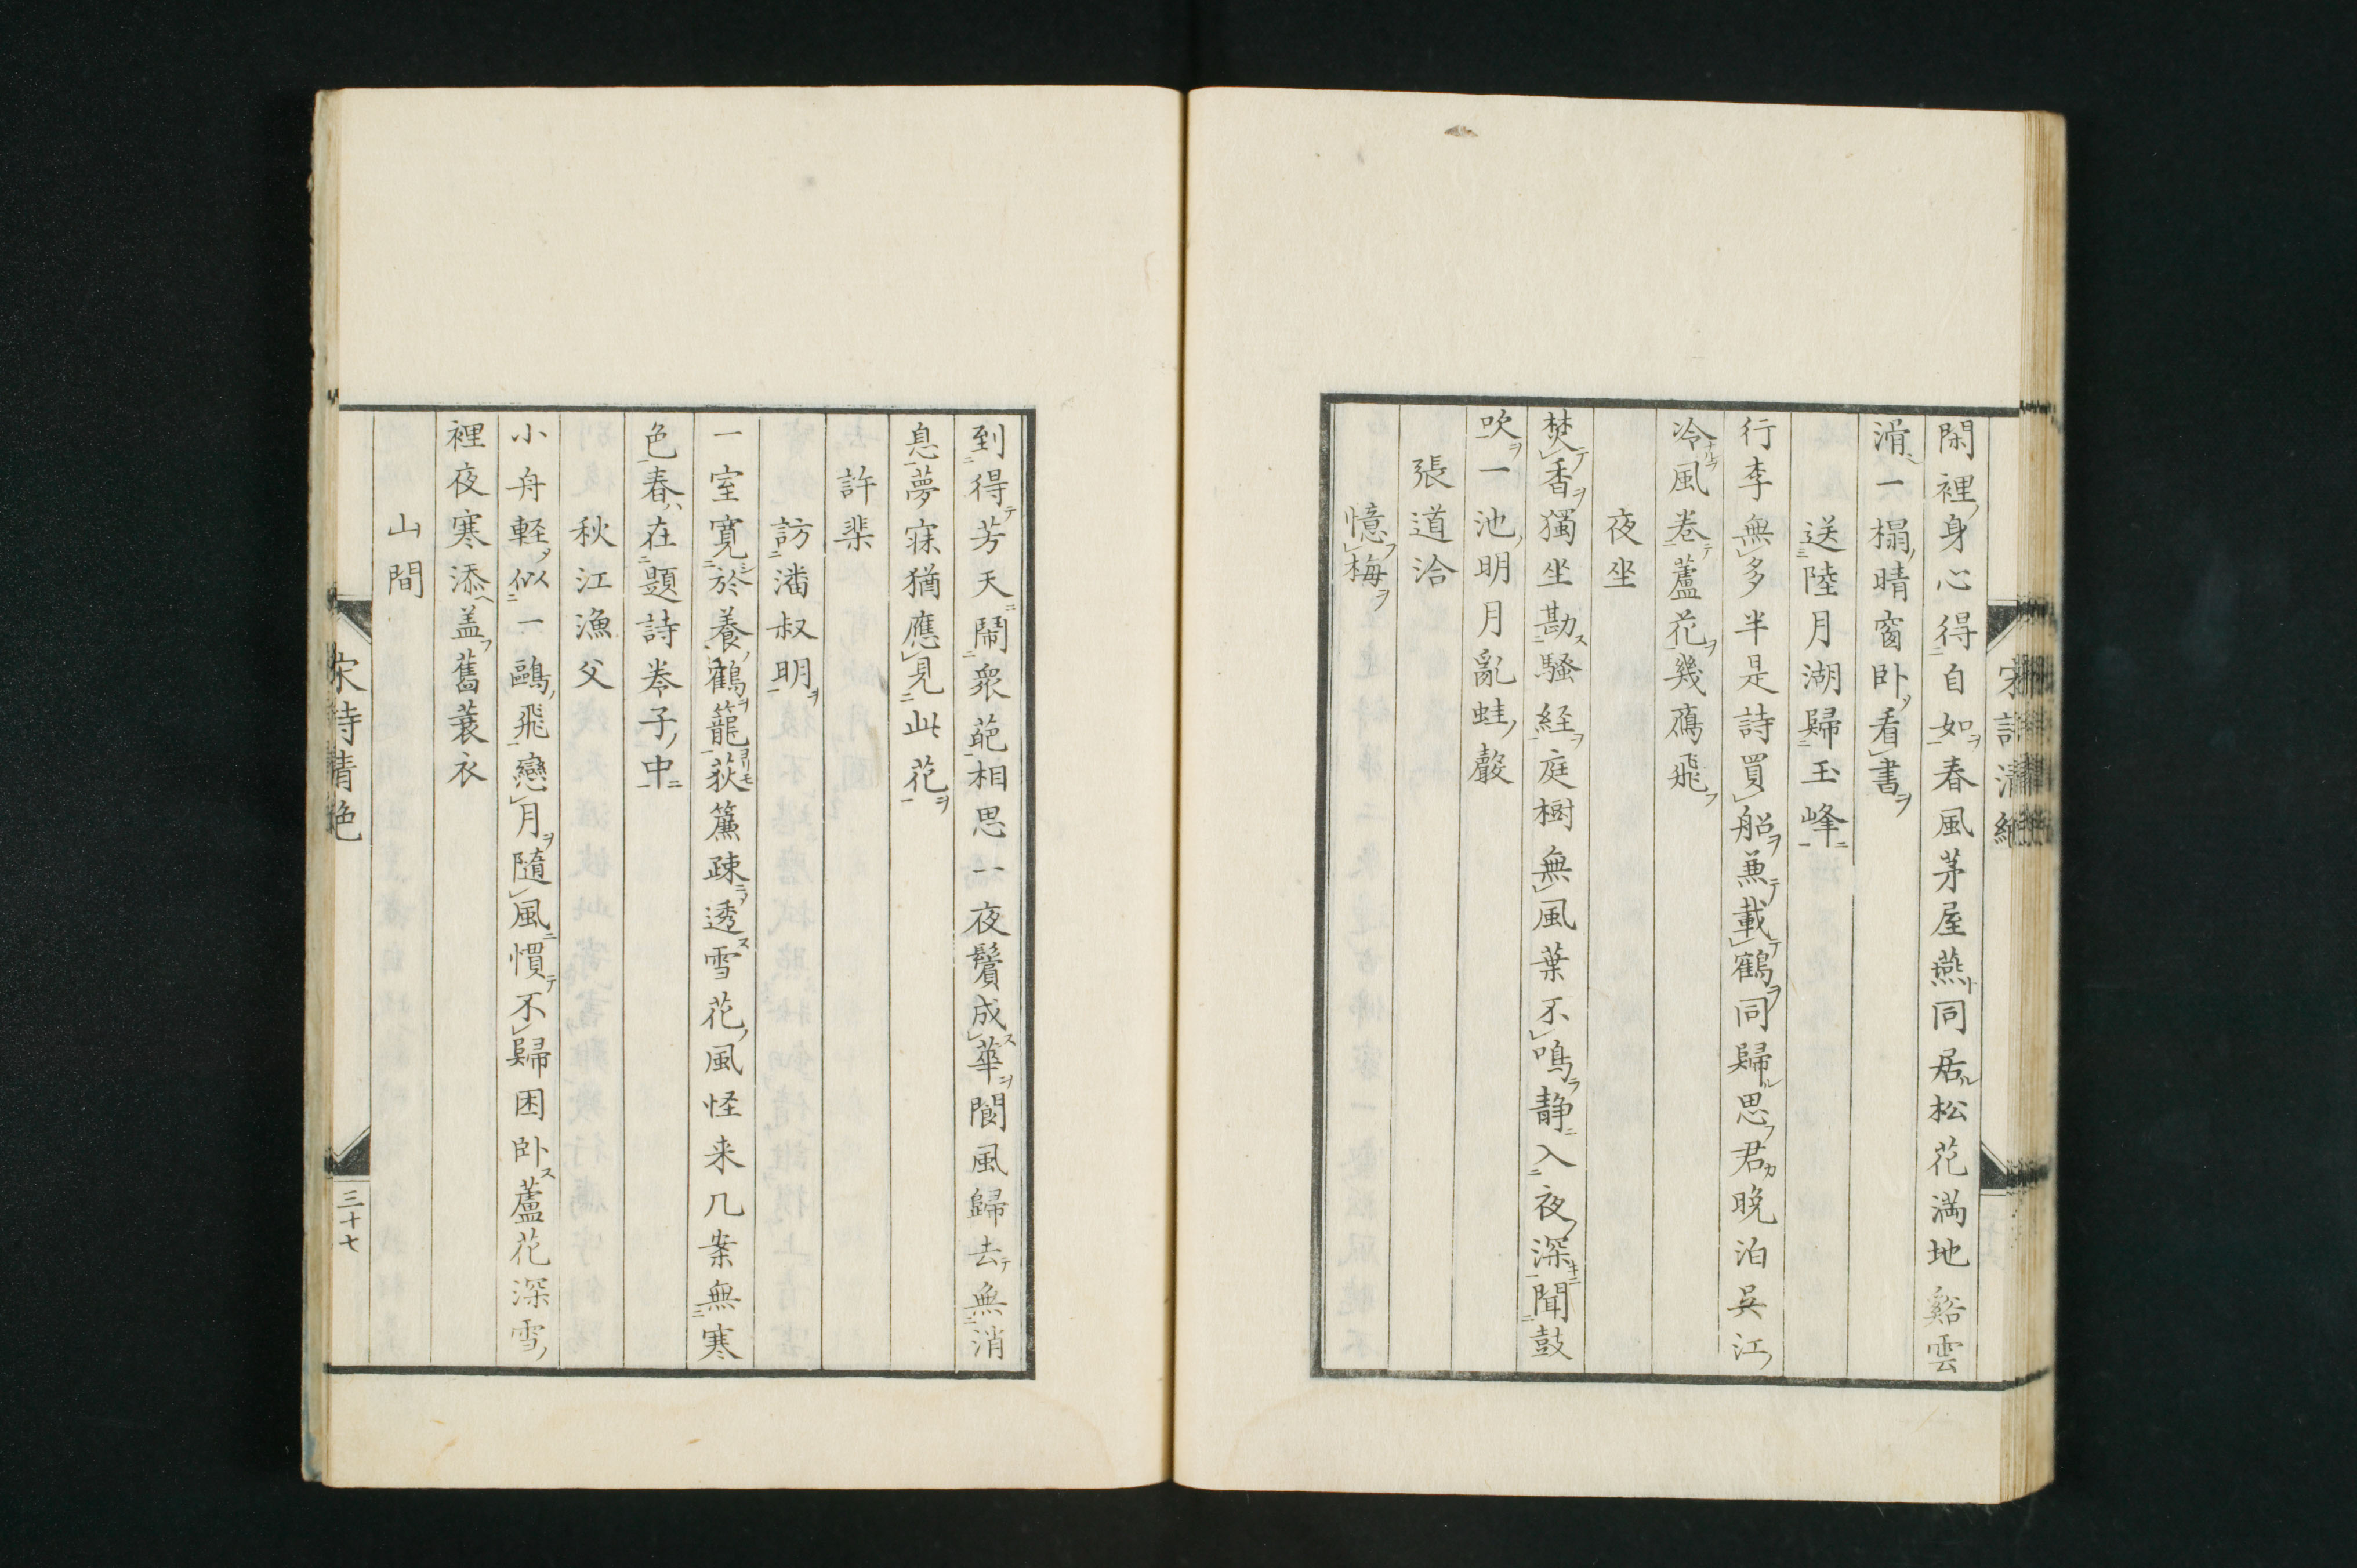 閑裡身心得自如春風茅屋燕同居松花満地谿雲
滑一榻晴窗卧看書
送陸月湖歸玉峰
行李無多半是詩買船兼載鶴同歸思君晚泊吳江
冷風卷蘆花幾鴈飛
夜坐
焚香獨坐勘騷経庭樹無風葉不鳴静入夜深聞鼓
吹一池明月亂蛙聲
張道洽
憶梅
到得芳天鬧衆葩相思一夜鬢成華閬風歸去無消
息夢寐猶應見此花
許棐
訪潘叔明
一室寛於養鶴籠荻簾疎透雪花風怪来几案無寒
色春在題詩巻子中
秋江漁父
小舟軽似一鷗飛戀月隨風慣不歸困卧蘆花深雪
裡夜寒添盖舊蓑衣
山間
宋詩清絶
三十七